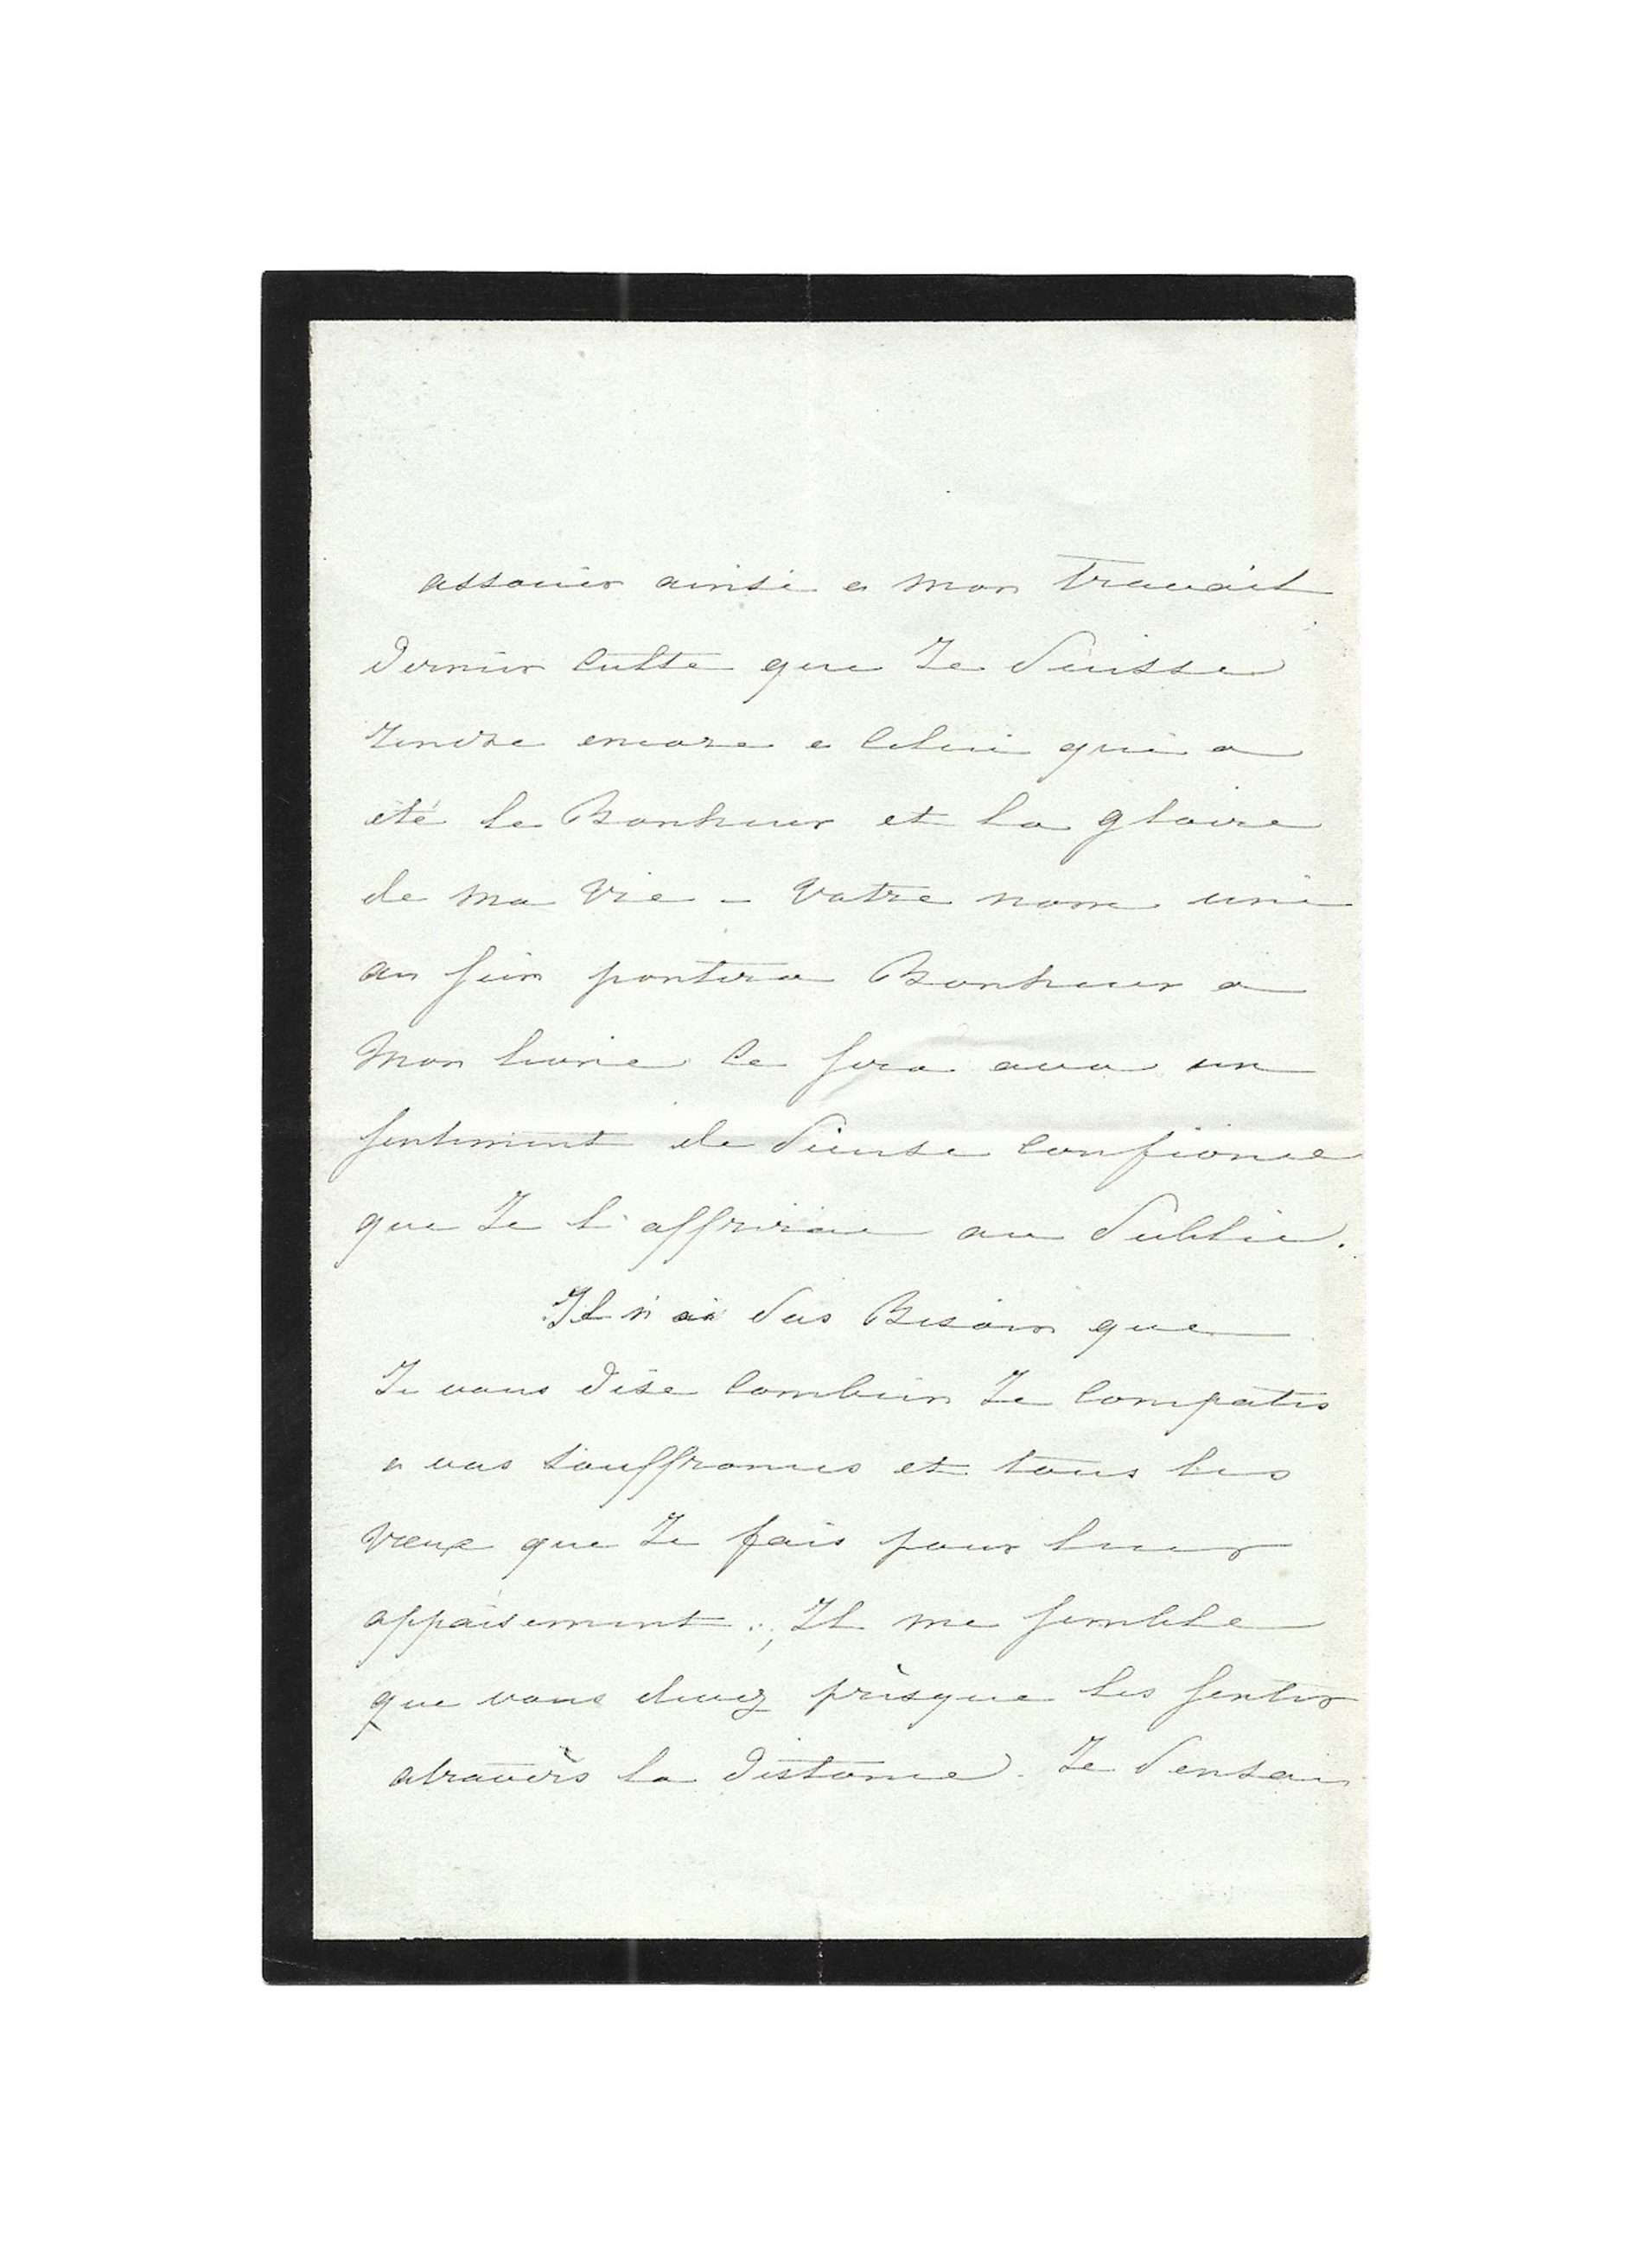 associer ainsi a mon travail
dernier culte que Je Puisse
rendre encore a Celui qui a
été le Bonheur et la gloire
de ma Vie – Votre nom uni
au sien portera Bonheur a
Mon livre Ce sera avec un
sentiment de Pieuse Confiance
que Je l'offrirai au Public.
Il n'ai Pas Besoin que
Je vous Dise Combien Je Compatis
a vos souffrances et tous les
Vœux que Je fais pour leur
appaisement. Il me semble
que vous devez présque les sentir
atravèrs la Distance. Je Pensai